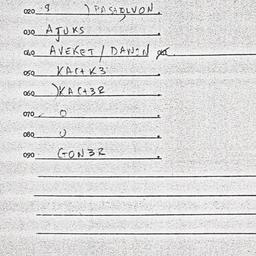 020 9 ) PASADLVON
030 AJUKS
040 AVEKET / DAWON
050 KACHK3
060 )KACH3R
070 0
080 U
090 GON3R